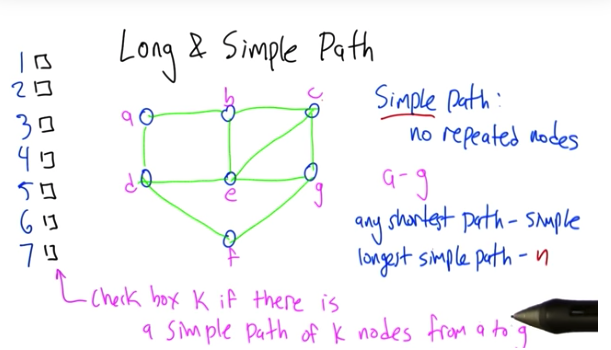 Long & Simple Path
1
2
3
4
5
6
7
a b c
d e g
f
Simple path:
no repeated nodes
a-g
any shortest path - simple
longest simple path - n
check box K if there is
a simple path of k nodes from a to g